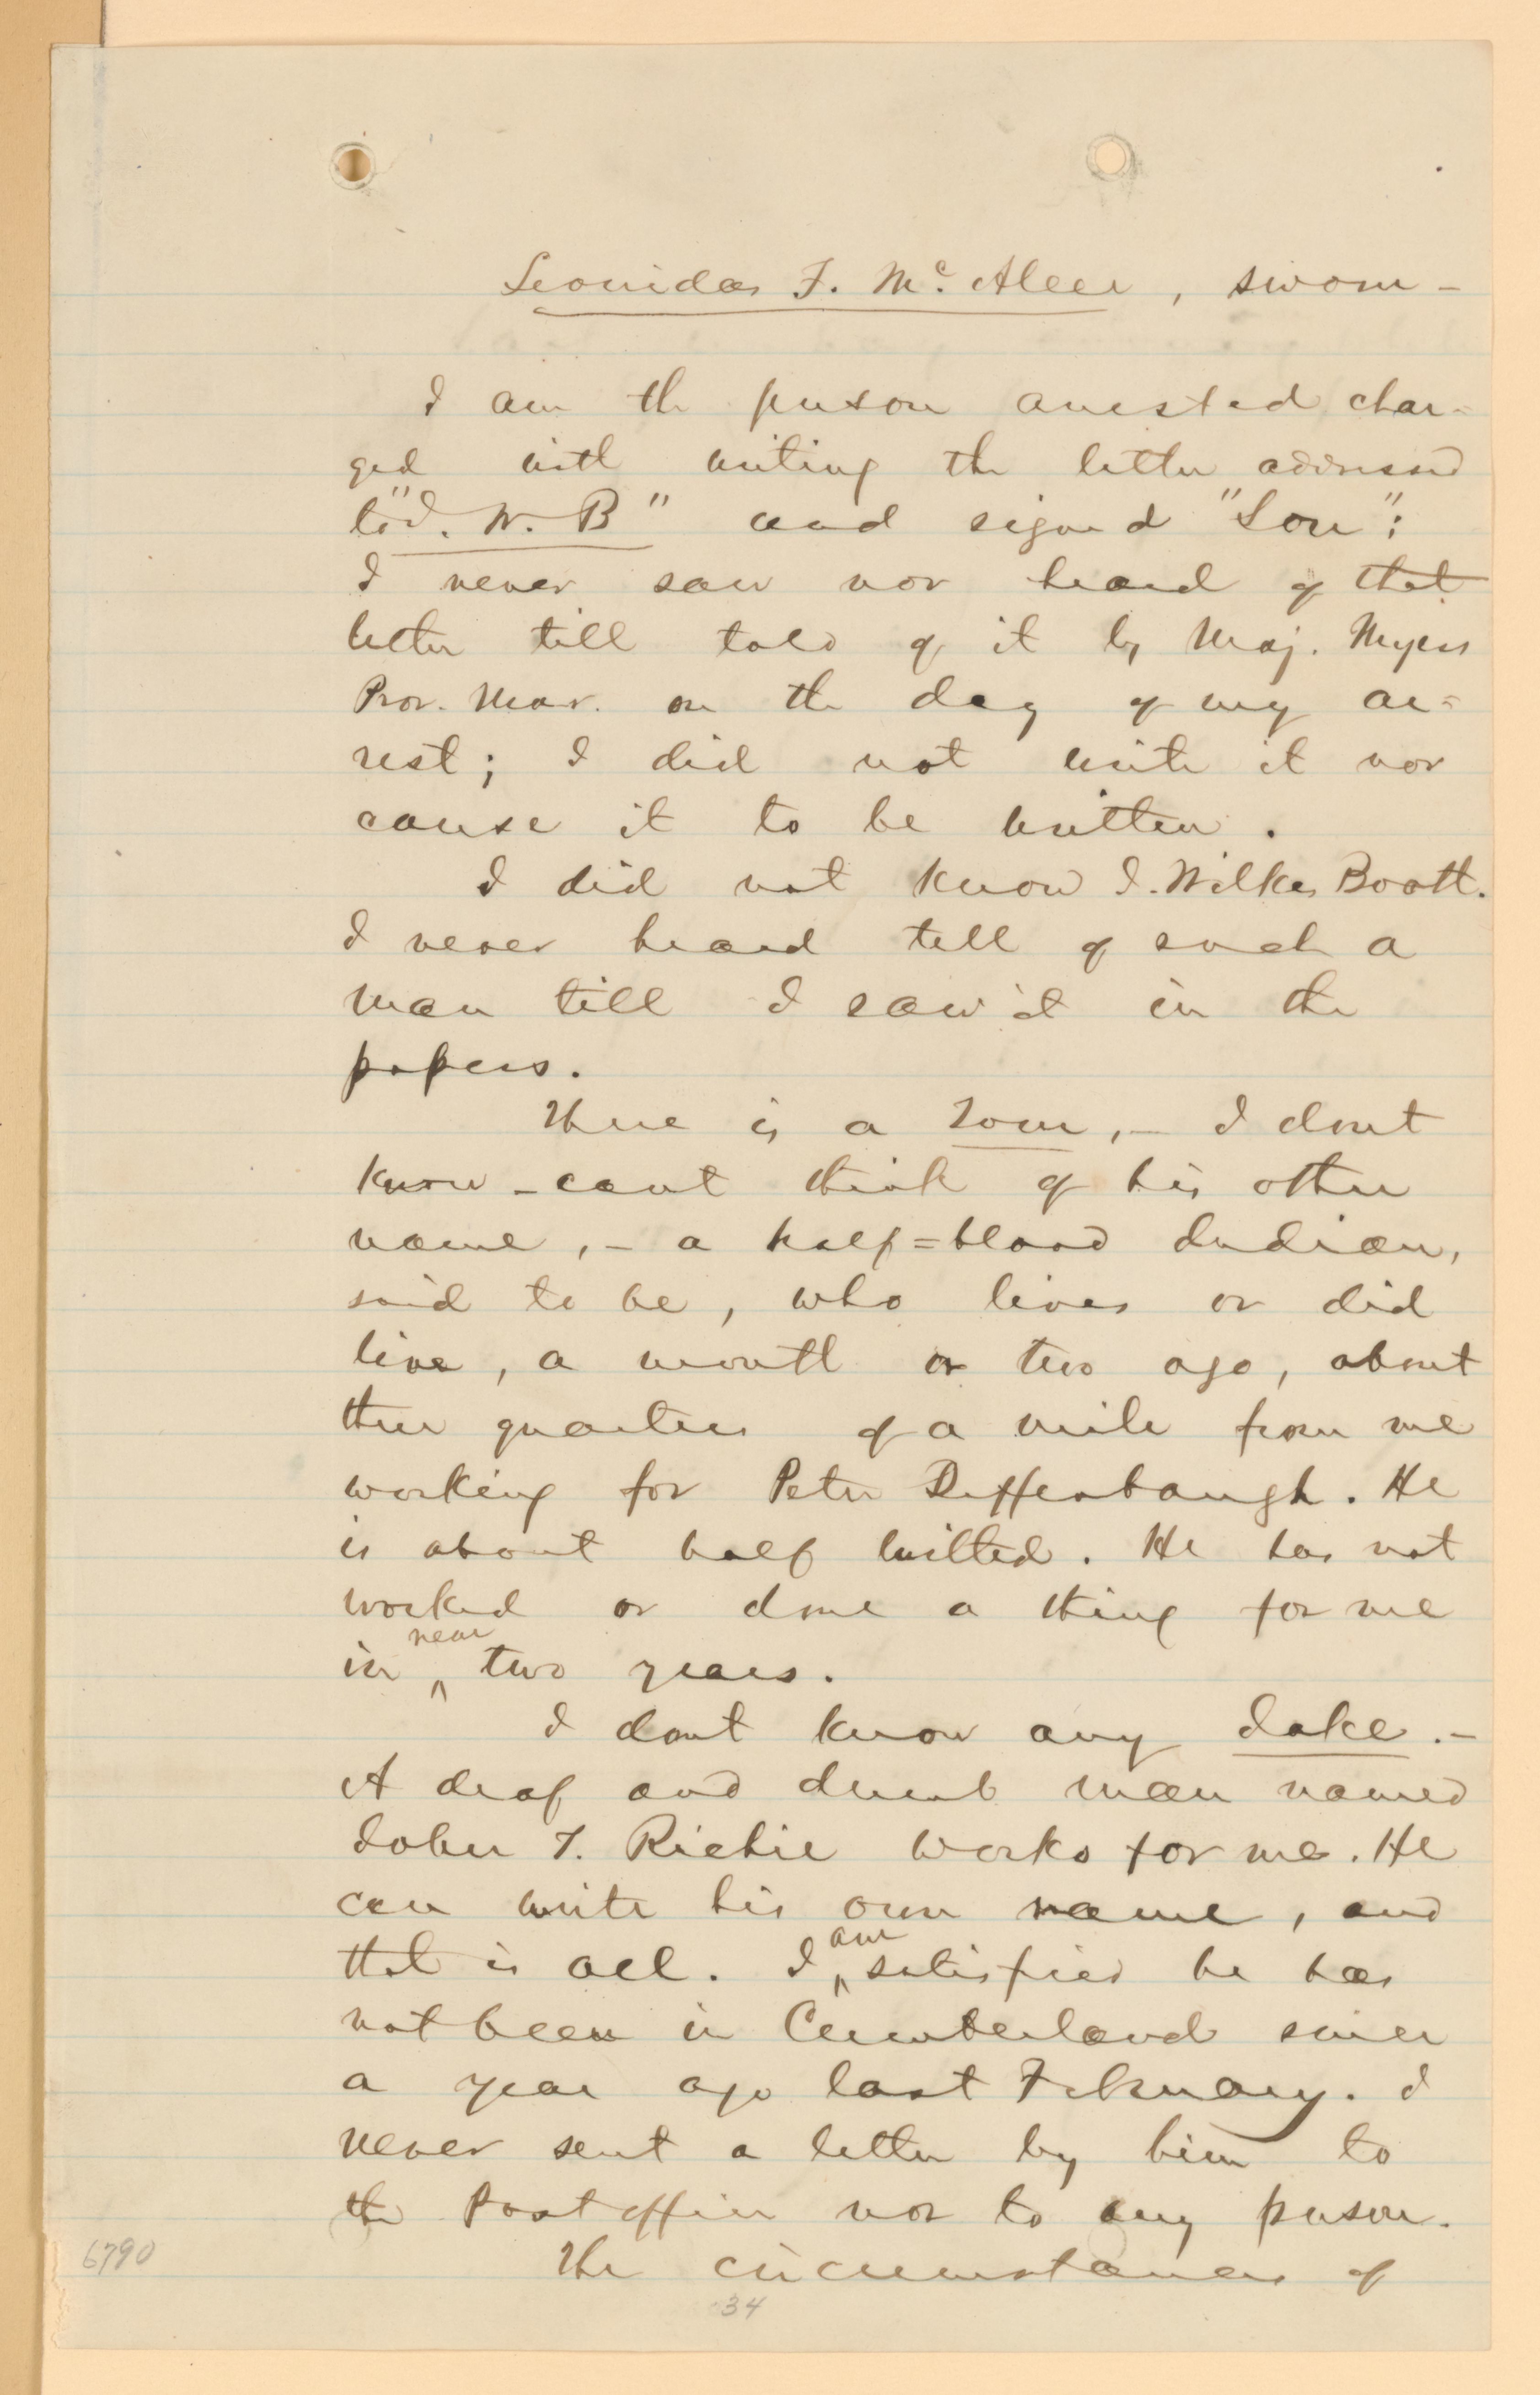 Leonidas F. McAleer, sworn -
I am the person arrested char-
ged with writing the letter addressed
to "J. W. B" and signed "Lou":
I never saw nor heard of that
letter till told of it by Maj. Myers
Prov. Mar. on the day of my ar=
rest; I did not write it nor
cause it to be written.
I did not know J. Wilkes Booth.
I never heard tell of such a
man till I saw it in the
papers.
There is a Tom, - I dont
know - cant think of his other
name, - a half=blood Indian,
said to be, who lives or did
live, a month or two ago, about
three quarters of a mile from me
working for Peter Deffenbaugh. He
is about half witted. He has not
worked or done a thing for me
in near two years.
I dont know any Jake. -
A deaf and dumb man named
John T. Richie works for me. He
can write his own name, and
that is all. I am satisfied he has
not been in Cumberland since
a year ago last February. I
never sent a letter by him to
the Post office nor to any person.
The circumstances of
6790
34